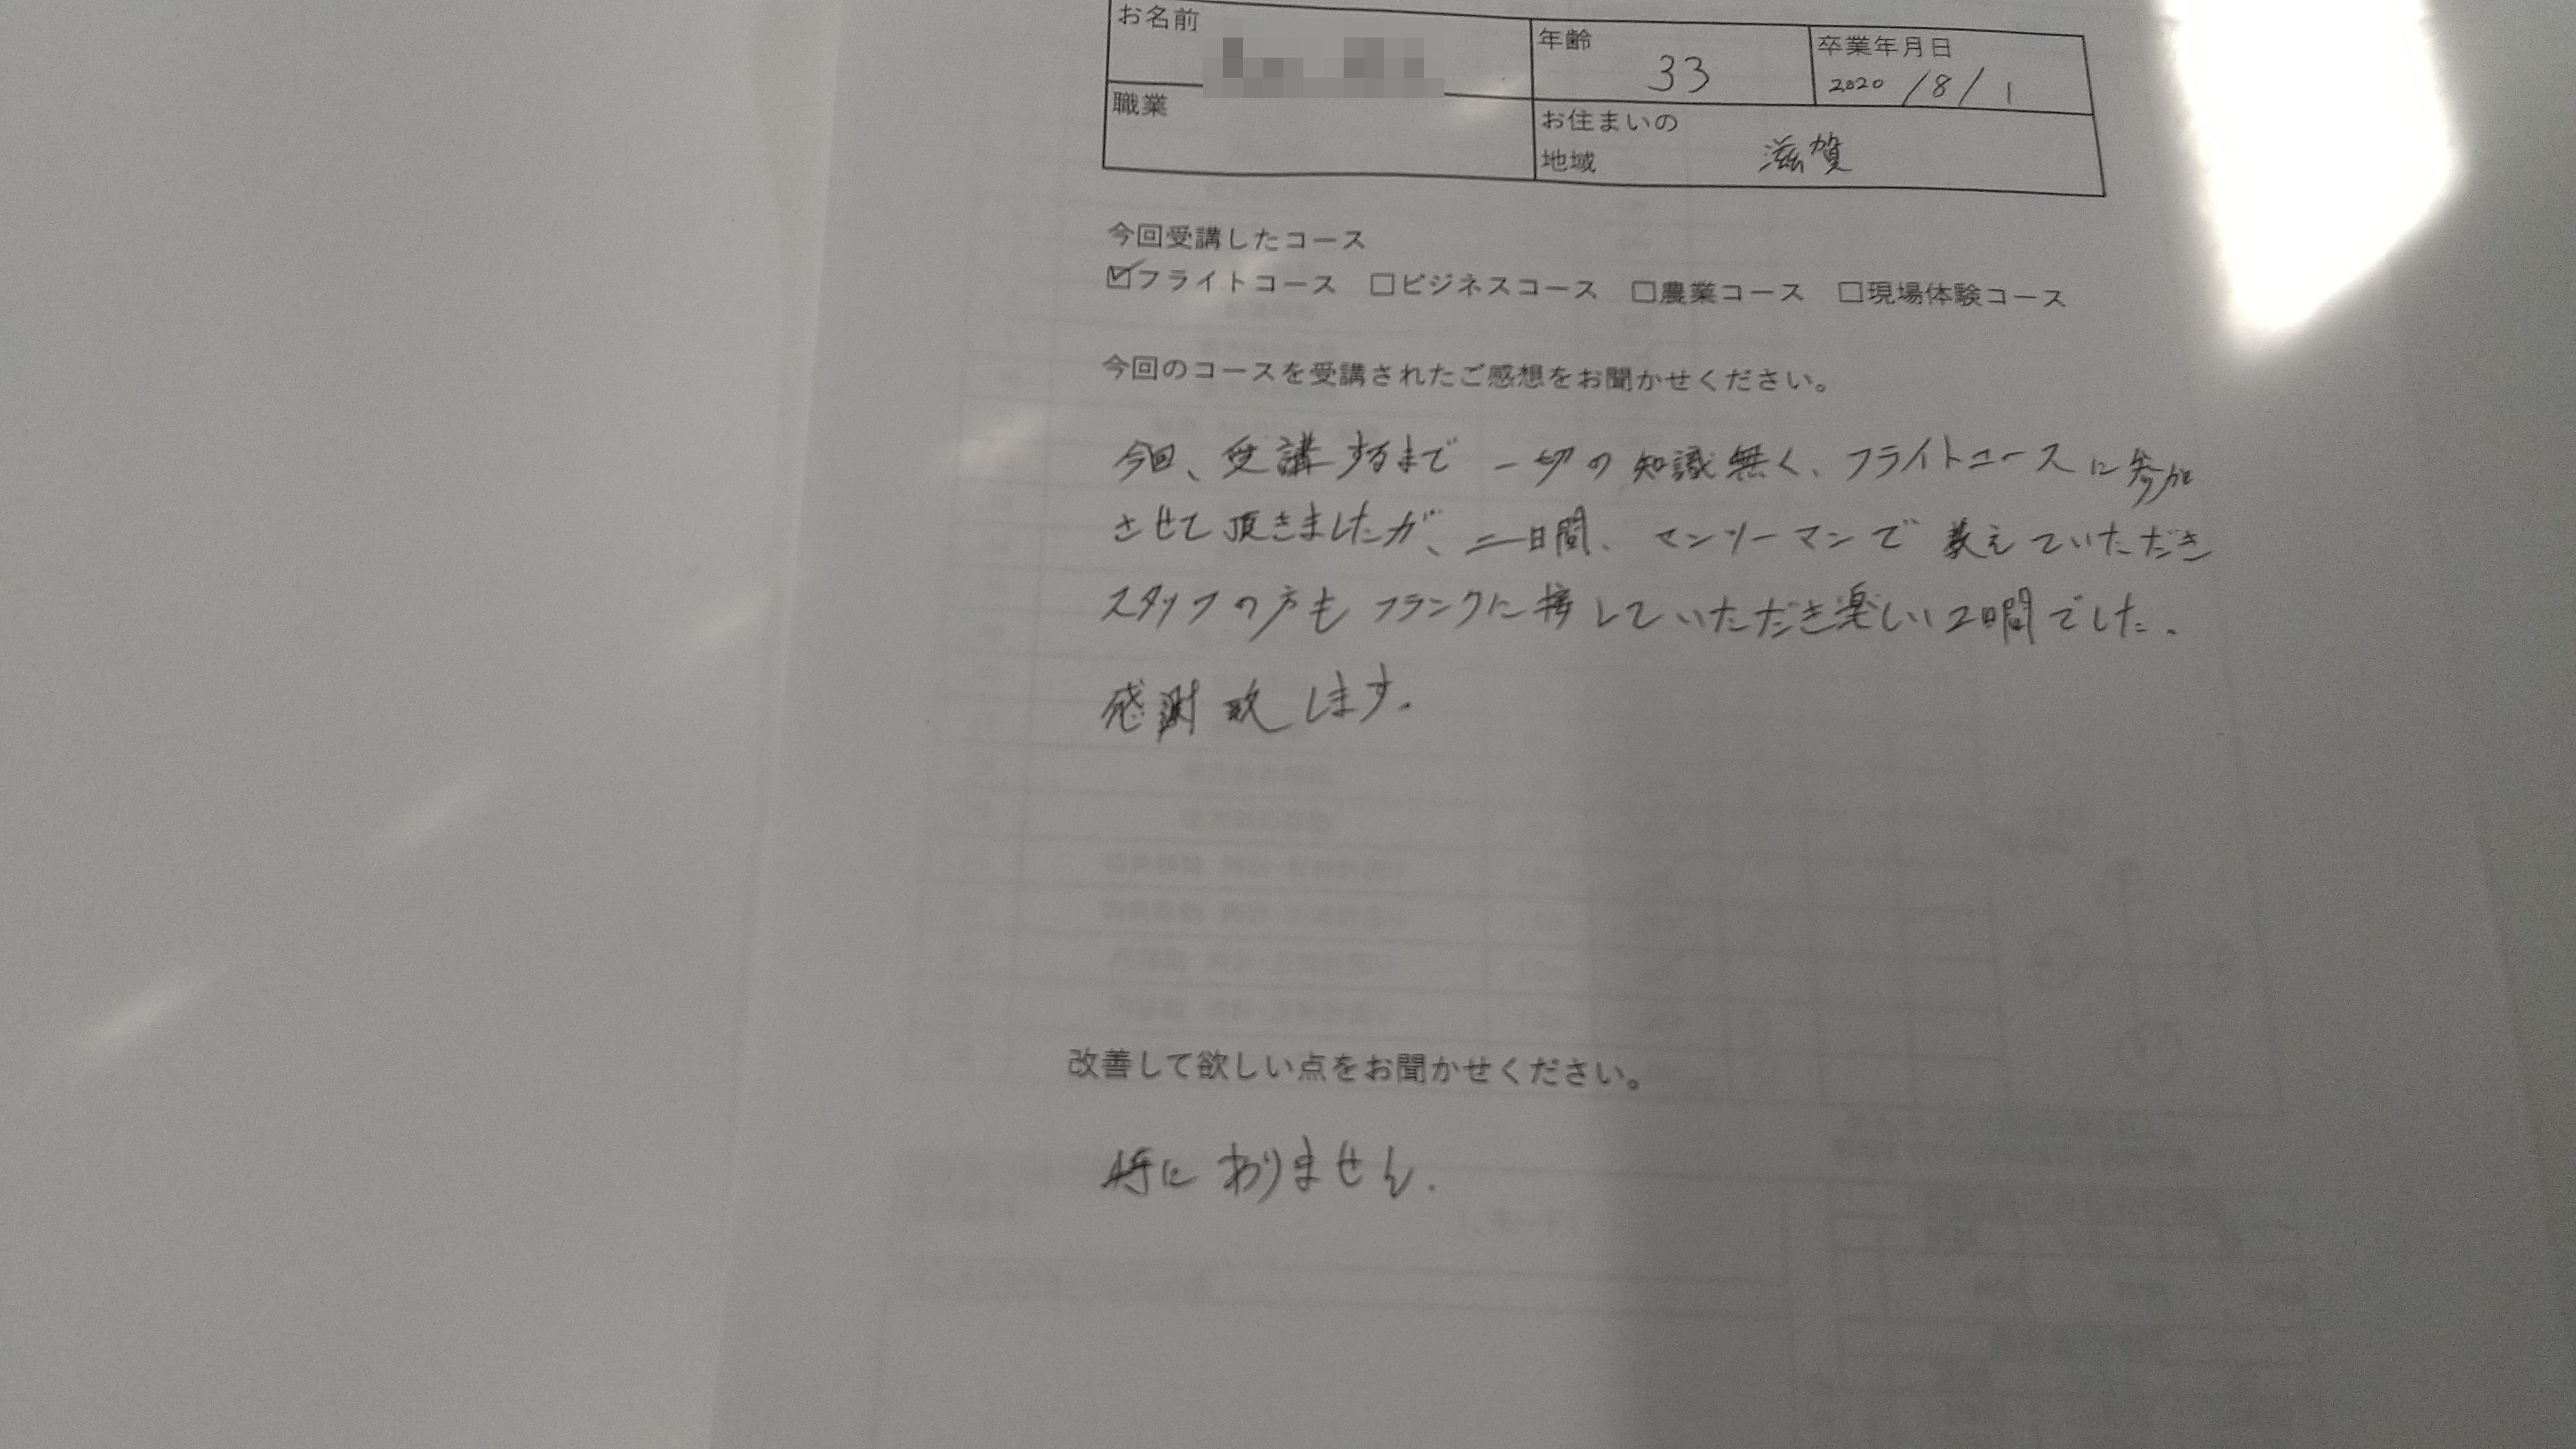 お名前
年齢 33
卒業年月日 2020/8/1
職業
お住まいの地域 滋賀
今回受講したコース
☑フライトコース □ビジネスコース □農業コース □現場体験コース
今回のコースを受講されたご感想をお聞かせください。
今回、受講するまで一切の知識無く、フライトコースに参加
させて頂きましたが、二日間、マンツーマンで教えていただき
スタッフの方もフランクに接していただき楽しい2日間でした。
感謝致します。
改善して欲しい点をお聞かせください。
特にありません.